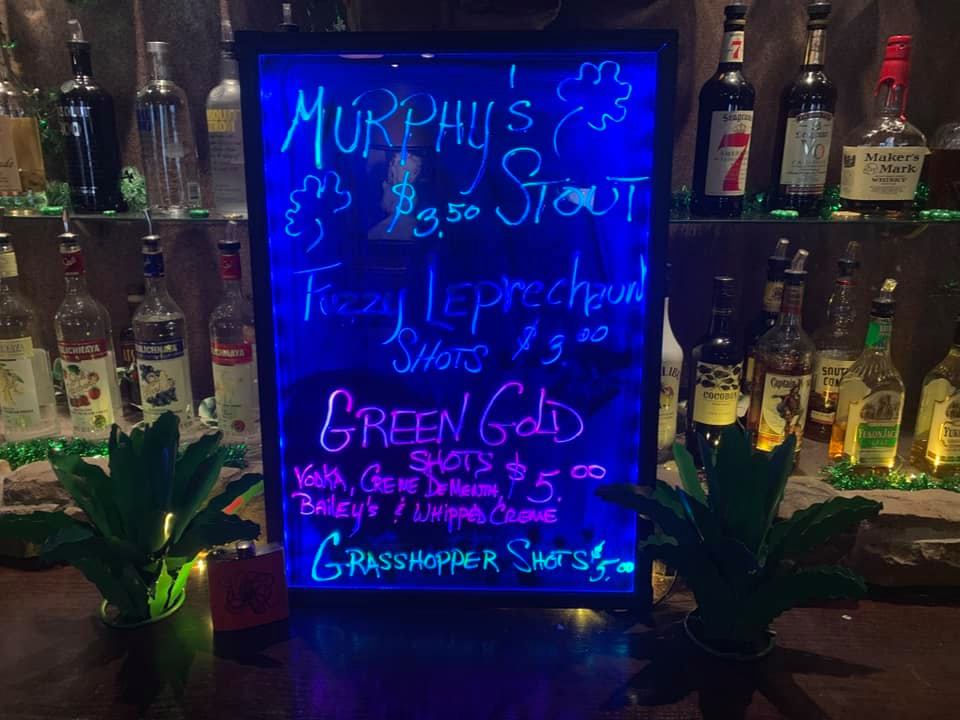 MURPHY's
$3.50 STOUT
Fuzzy Leprechaun
SHOTS $3.00
GREEN GOLD
SHOTS $5.00
VODKA, CREME DE MENTH,
BAILEY'S & WHIPPED CREME
GRASSHOPPER SHOTS $5.00
7
Seagram's
Seagram's
VO
Maker's
Mark
WHISKY
Captain
YUKON JACK